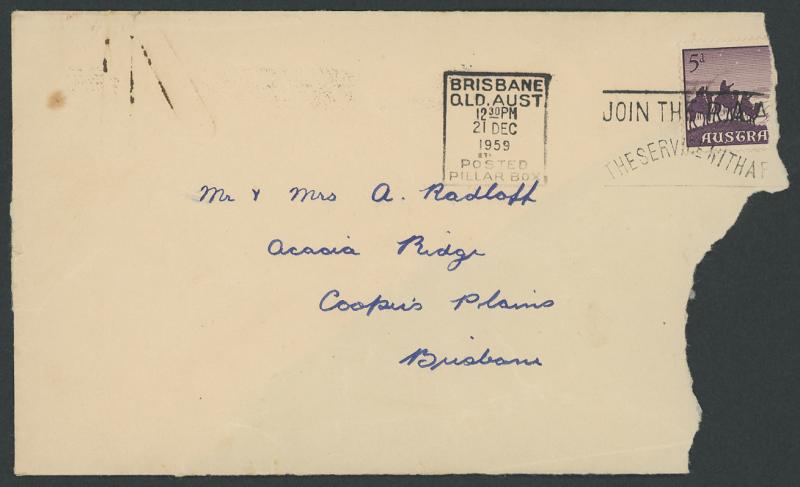 BRISBANE
QLD. AUST
12 30 PM
21 DEC
1959
POSTED
PILLAR BOX
5d
JOIN TH
AUSTRA
THE SERVICE WITH A F
Mr & Mrs A. Radloff
Acacia Ridge
Cooper's Plains
Brisbane